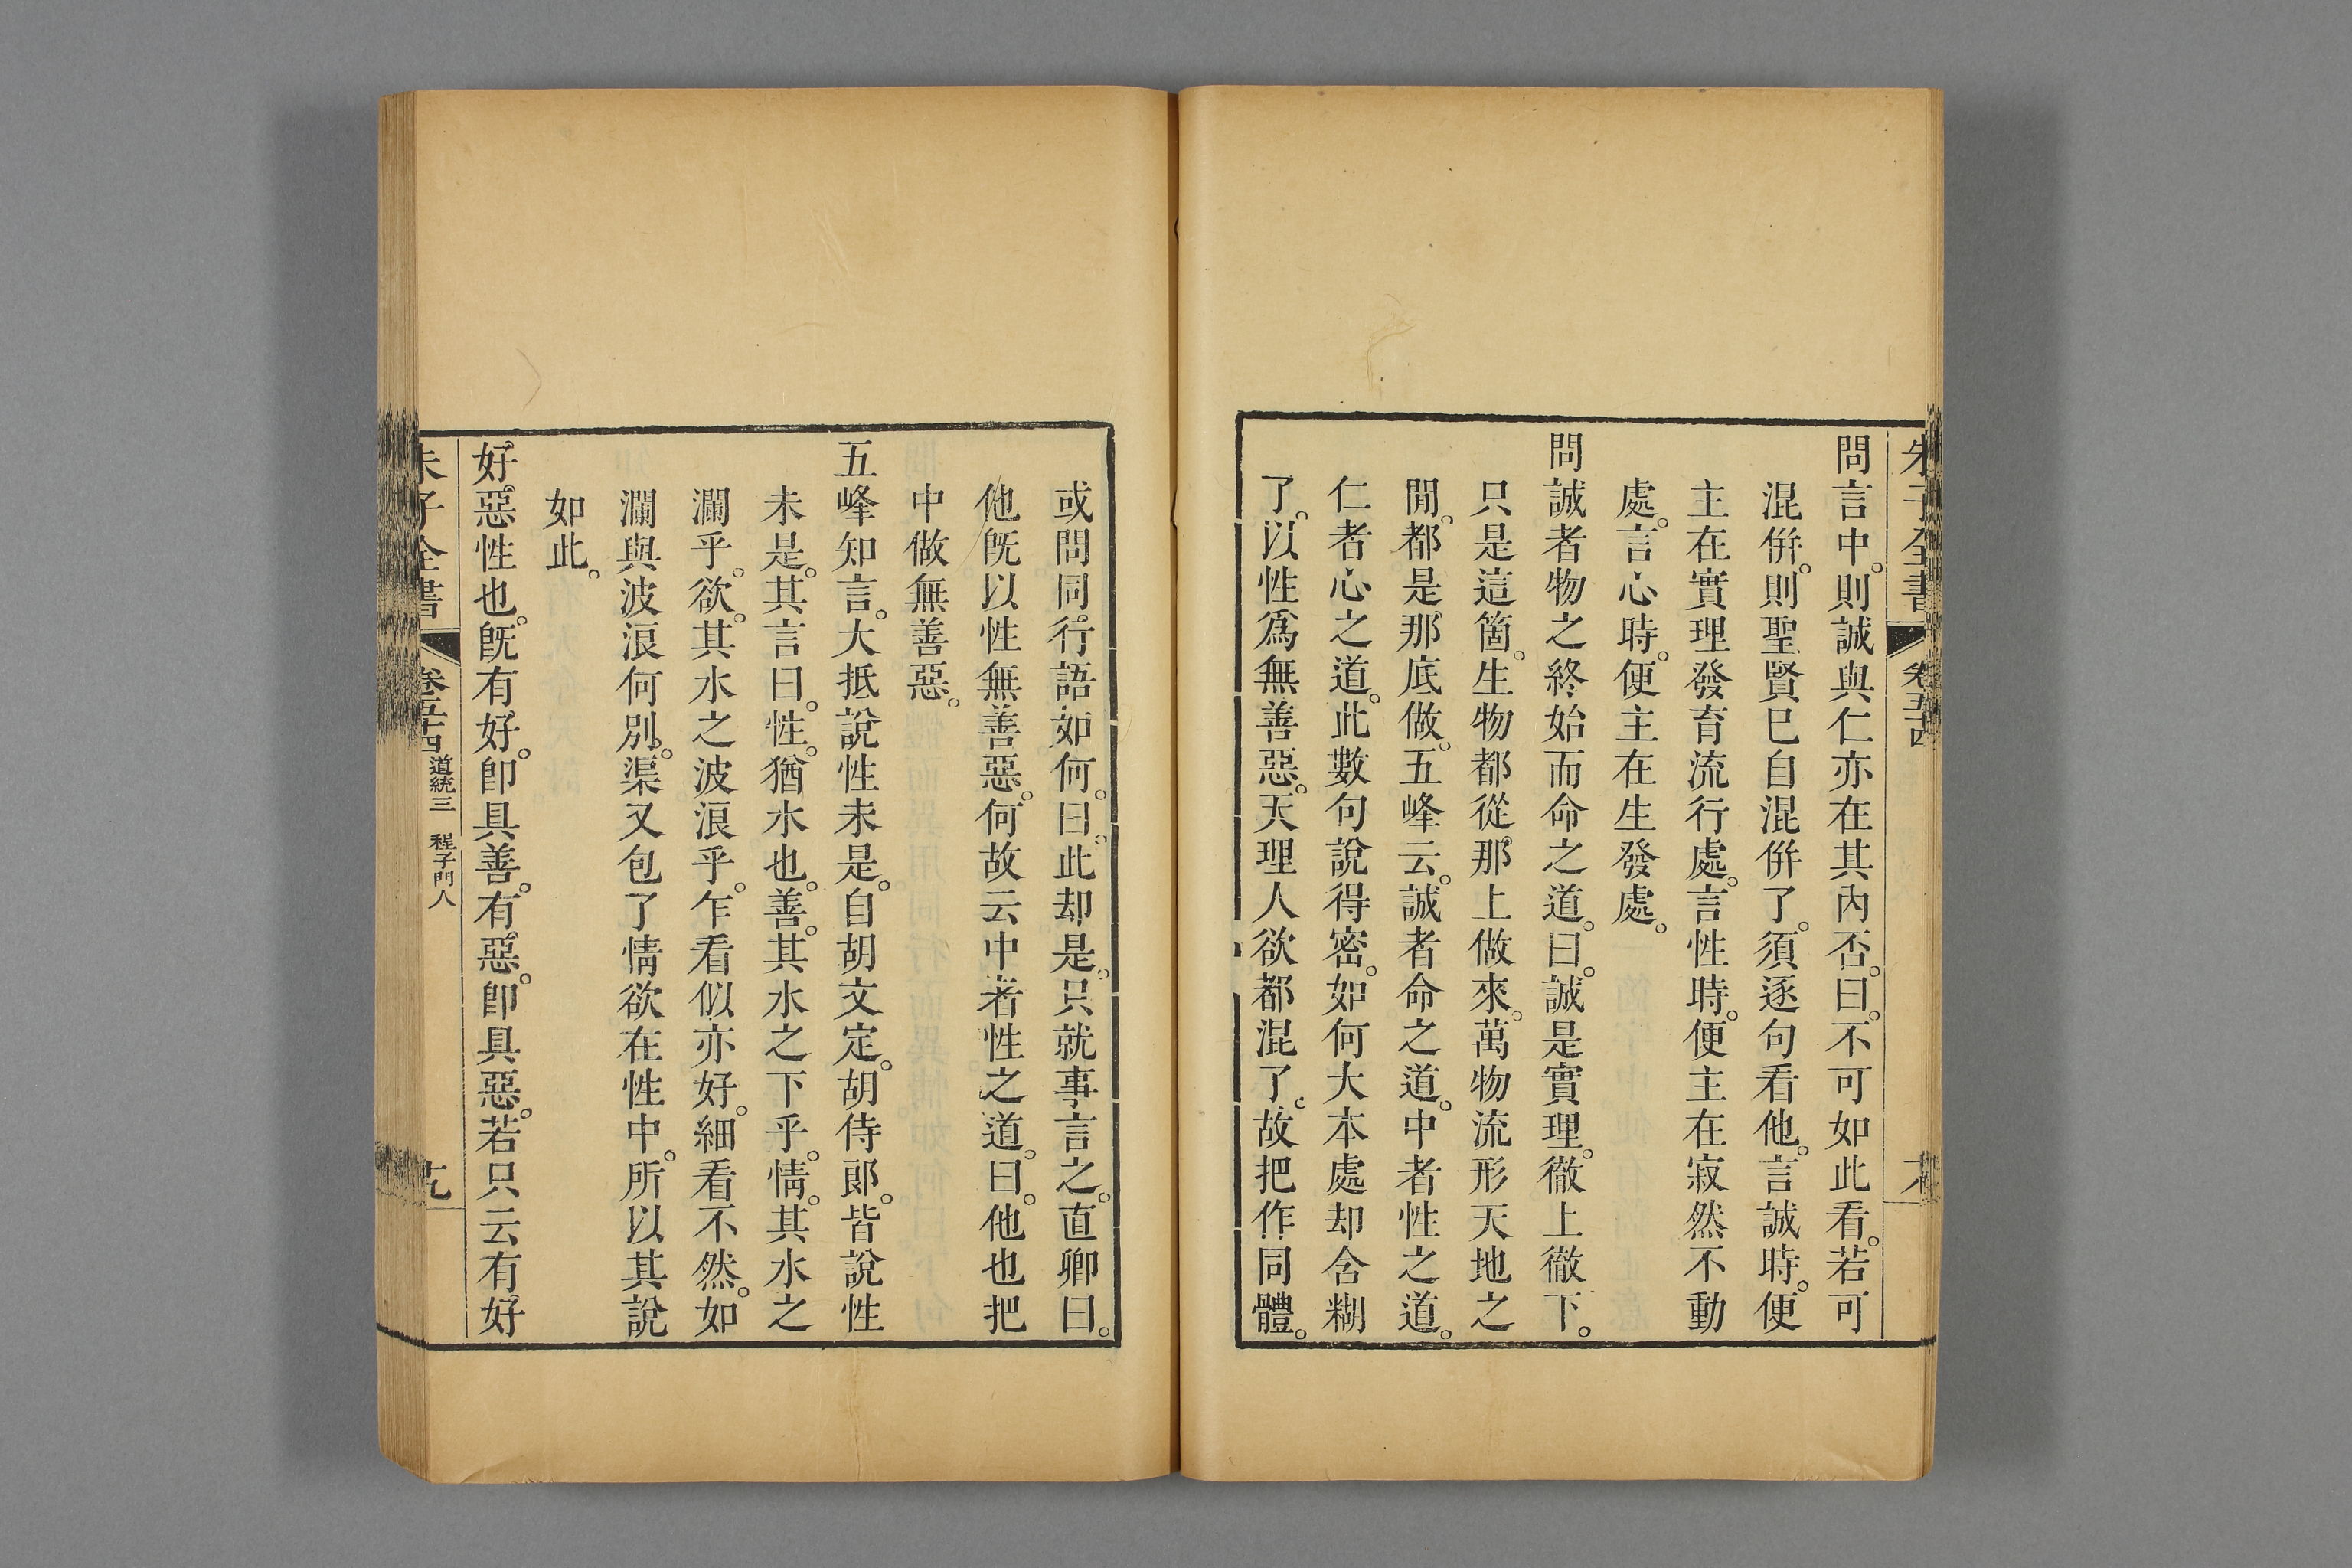 朱子全書 卷五十四
問言中。則誠與仁亦在其內否。曰。不可如此看。若可
混倂。則聖賢已自混倂了。須逐句看他。言誠時。便
主在實理發育流行處。言性時。便主在寂然不動
處。言心時。便主在生發處。
問誠者物之終始而命之道。曰。誠是實理。徹上徹下。
只是這箇。生物都從那上做來。萬物流形天地之
閒。都是那底做。五峰云。誠者命之道。中者性之道。
仁者心之道。此數句說得密。如何大本處却含糊
了。以性爲無善惡。天理人欲都混了。故把作同體。
或問同行語如何。曰。此却是。只就事言之。直卿曰。
他旣以性無善惡。何故云中者性之道。曰。他也把
中做無善惡。
五峰知言。大抵說性未是。自胡文定。胡侍郞。皆說性
未是。其言曰。性。猶水也。善。其水之下乎。情。其水之
瀾乎。欲。其水之波浪乎。乍看似亦好。細看不然。如
瀾與波浪何別。渠又包了情欲在性中。所以其說
如此。
好惡性也。旣有好。卽具善。有惡。卽具惡。若只云有好
朱子全書 卷五十四 道統三 程子門人